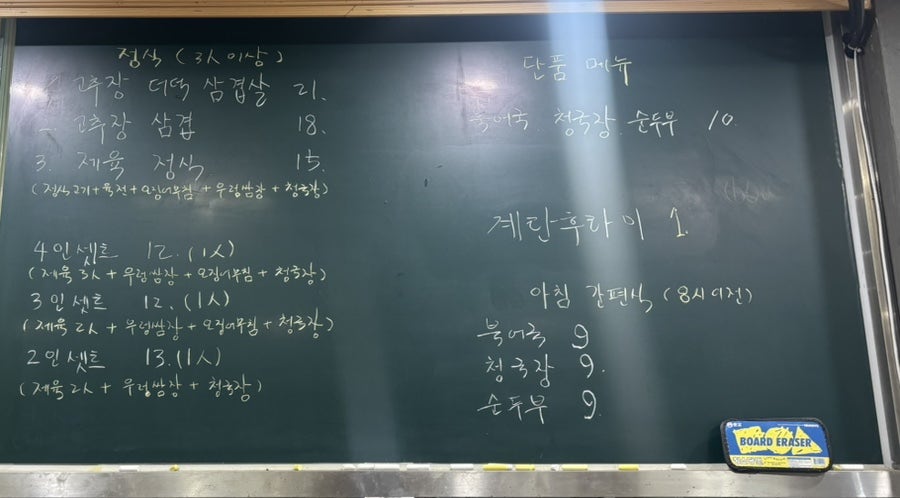 정식 (3人 이상)
고추장 더덕 삼겹살 21.
고추장 삼겹 18.
3. 제육 정식 15.
(정식 2기+육전+오징어무침 + 우렁쌈장 + 청국장)
4인 셋트 12. (1人)
(제육 3人 + 우렁쌈장 + 오징어무침 + 청국장)
3인 셋트 12. (1人)
(제육 2人 + 우렁쌈장 + 오징어무침 + 청국장)
2인 셋트 13. (1人)
(제육 2人 + 우렁쌈장 + 청국장)
단품 메뉴
북어국. 청국장. 순두부 10.
계란후라이 1.
아침 간편식 (8시 이전)
북어국 9
청국장 9.
순두부 9.
BOARD ERASER